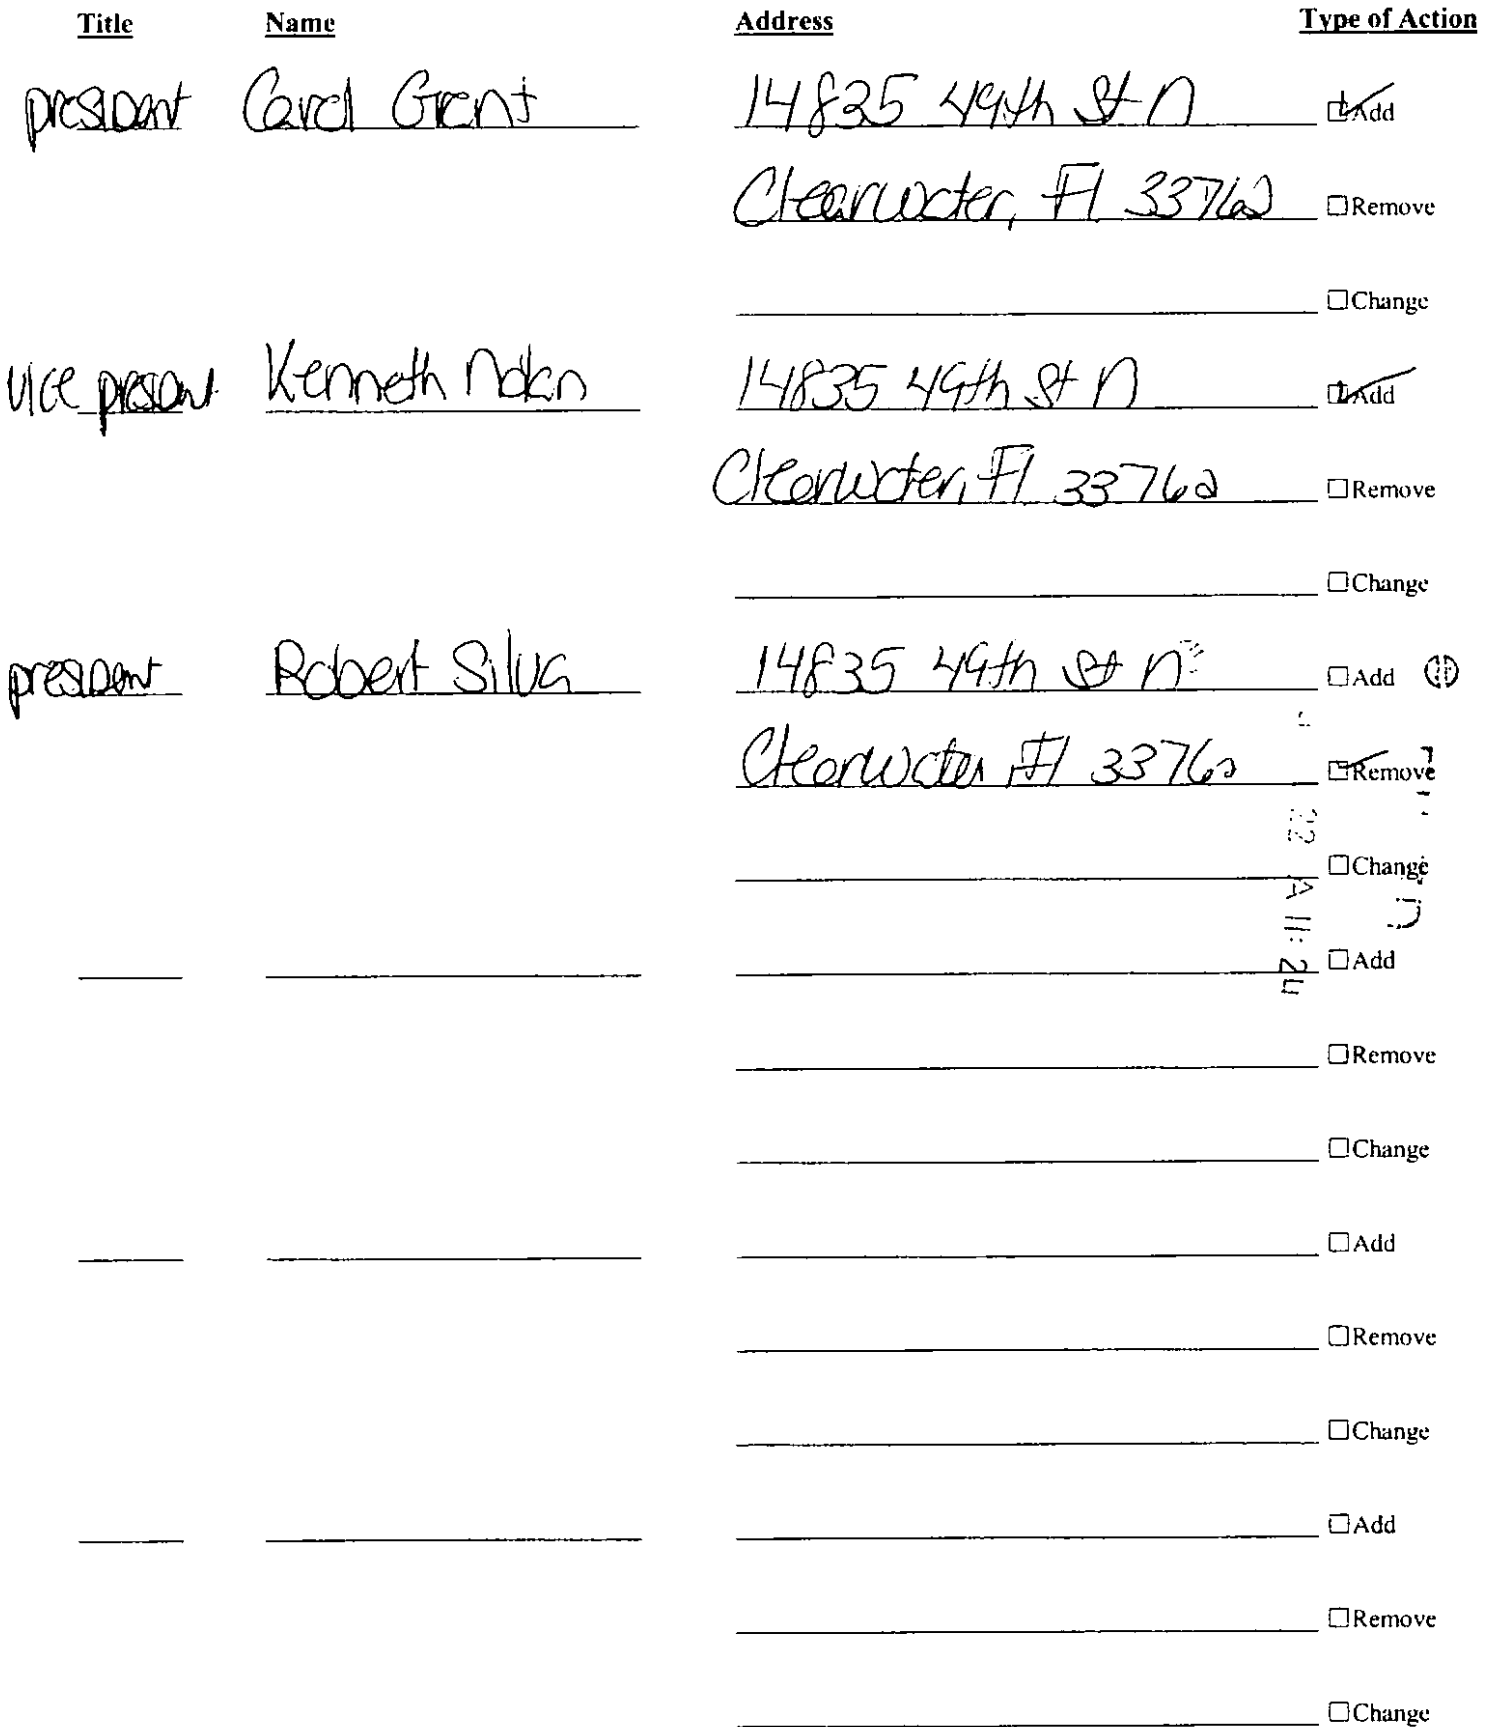 Title Name Address Type of Action
president Carol Grant 14835 49th St N ☑Add
Clearwater, Fl 33762 ☐Remove
☐Change
vice president Kenneth Nolan 14835 49th St N ☑Add
Clearwater, Fl 33762 ☐Remove
☐Change
president Robert Silva 14835 49th St N ☐Add
Clearwater, Fl 33762 ☑Remove
☐Change
22 A 11: 24
☐Add
☐Remove
☐Change
☐Add
☐Remove
☐Change
☐Add
☐Remove
☐Change